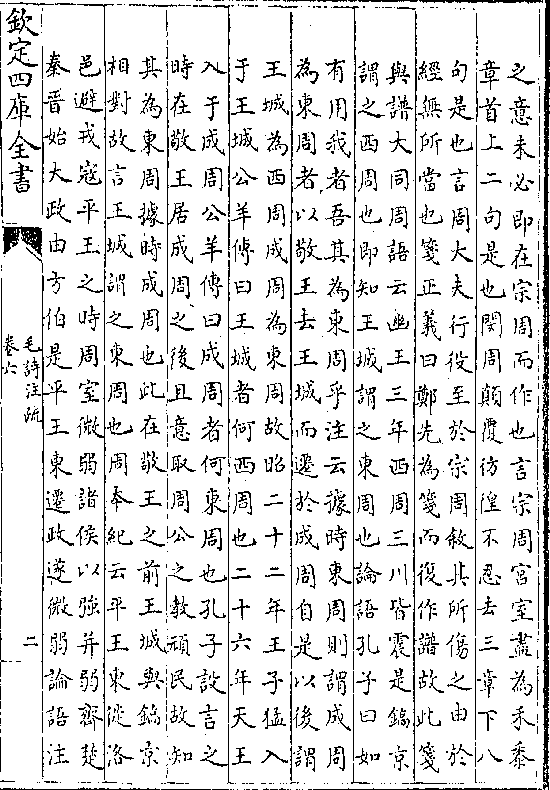 之意未必即在宗周而作也言宗周宫室盡為禾黍
章首上二句是也閔周顛覆彷徨不忍去三章下八
句是也言周大夫行役至於宗周敘其所傷之由於
經無所當也箋正義曰鄭先為箋而復作譜故此箋
與譜大同周語云幽王三年西周三川皆震是鎬京
謂之西周也即知王城謂之東周也論語孔子曰如
有用我者吾其為東周乎注云據時東周則謂成周
為東周者以敬王去王城而遷於成周自是以後謂
王城為西周成周為東周故昭二十二年王子猛入
于王城公羊傳曰王城者何西周也二十六年天王
入于成周公羊傳曰成周者何東周也孔子設言之
時在敬王居成周之後且意取周公之教頑民故知
其為東周據時成周也此在敬王之前王城與鎬京
相對故言王城謂之東周也周本紀云平王東徙洛
邑避戎寇平王之時周室微弱諸侯以強并弱齊楚
秦晉始大政由方伯是平王東遷政遂微弱論語注
欽定四庫全書
毛詩注疏
卷六
二